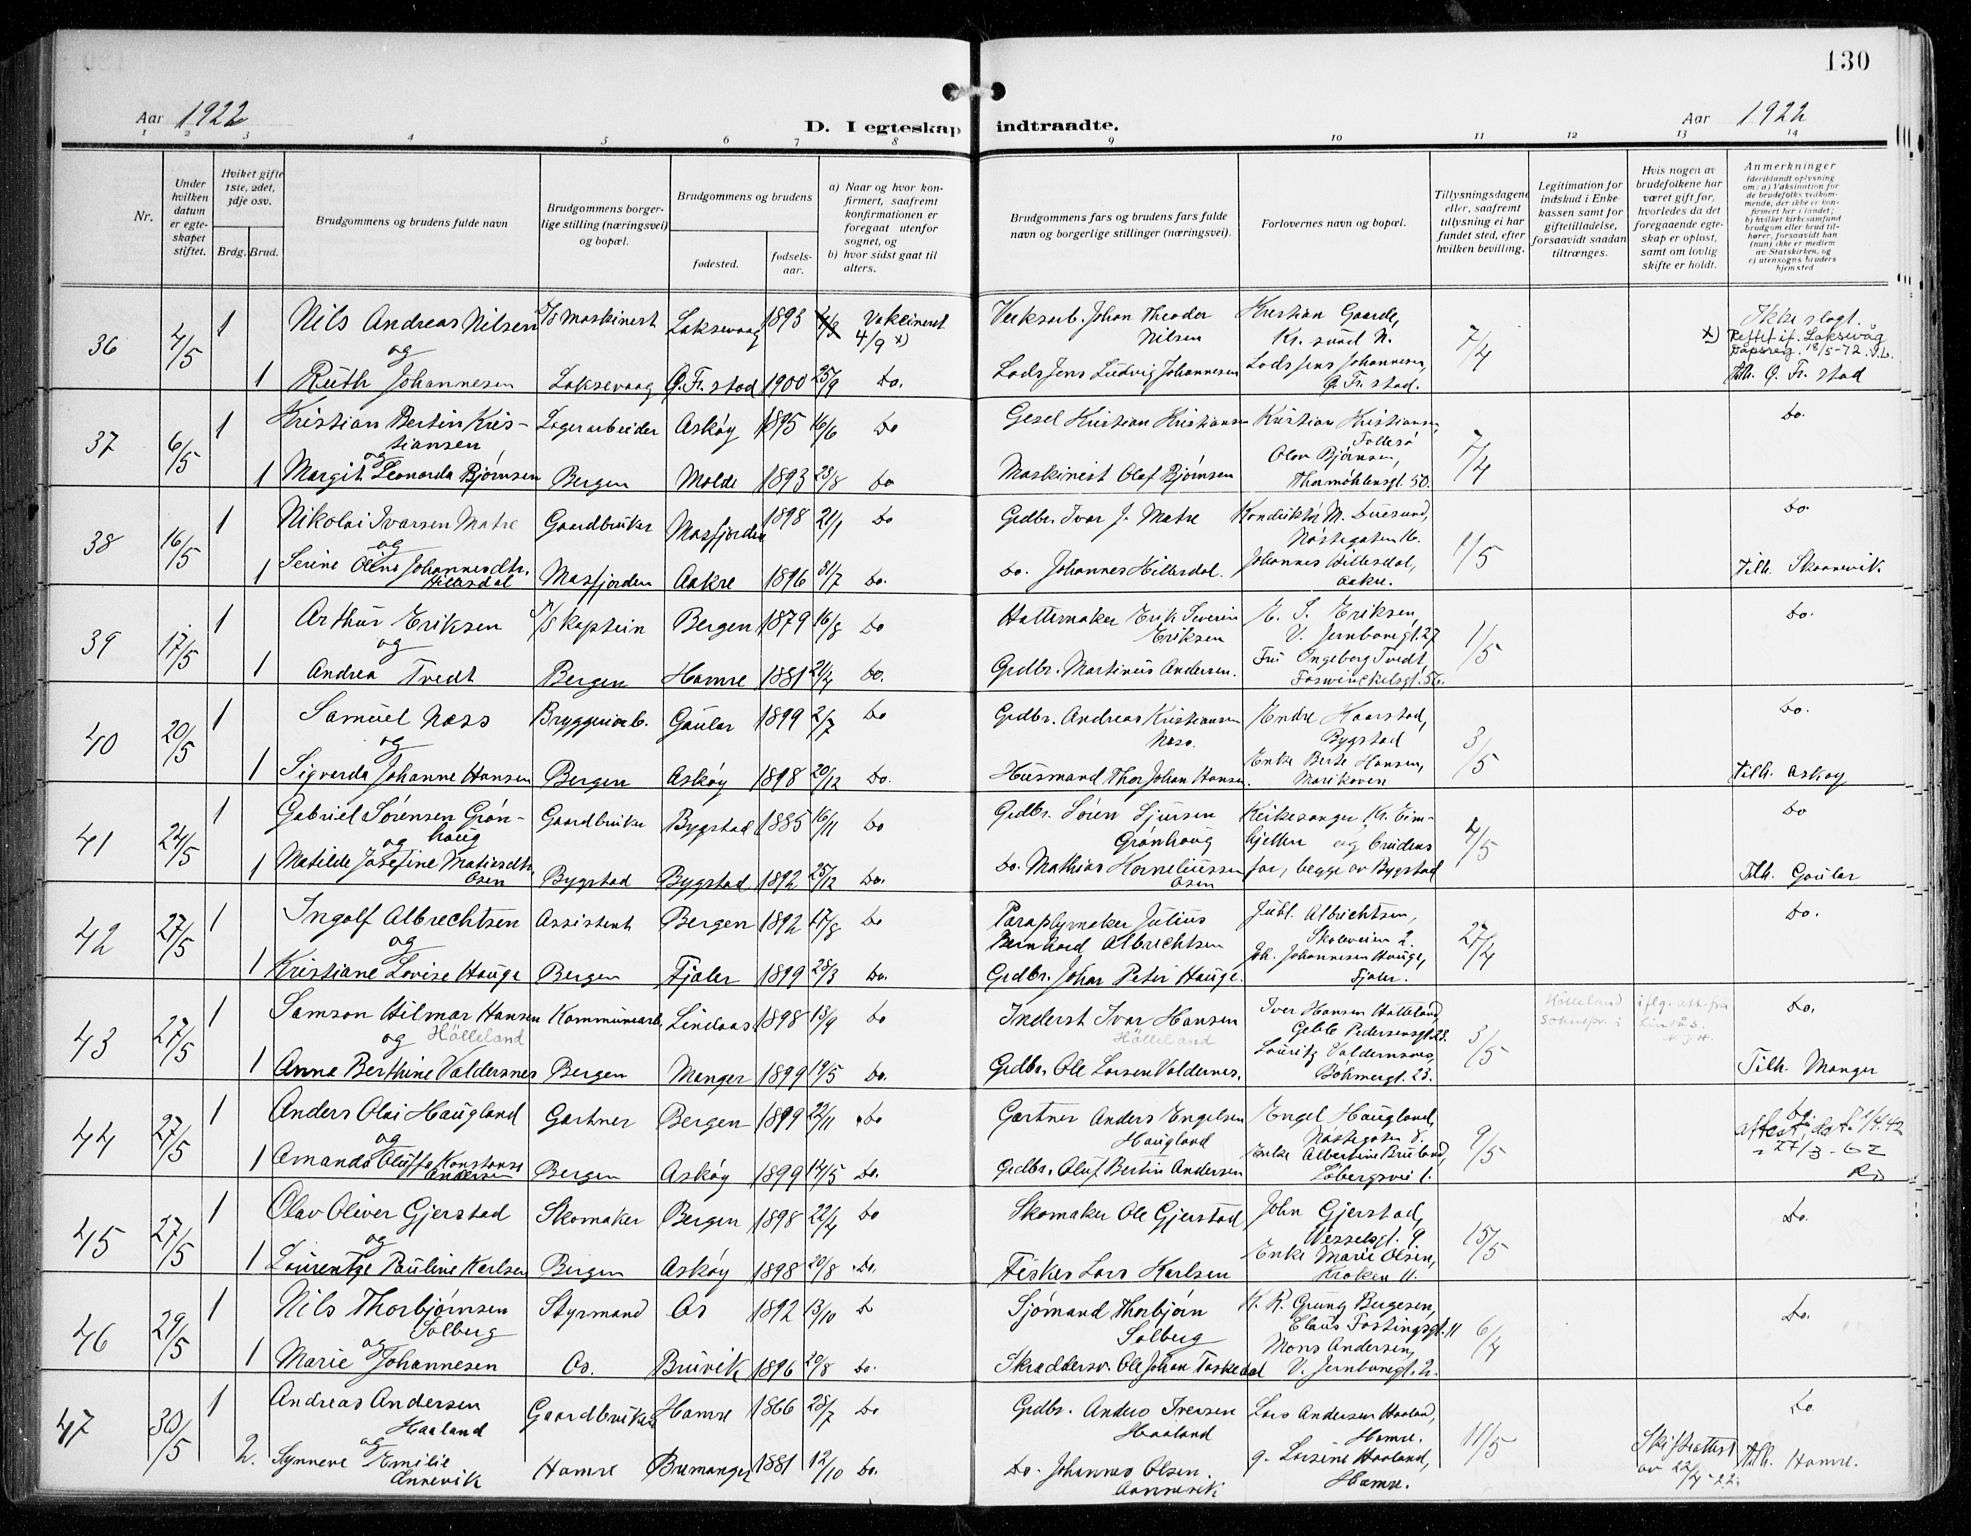 130
Aar 1922
D. I egteskap indtraadte.
Aar 1922
1 2 3 4 5 6 7 8 9 10 11 12 13 14
Nr.
Under hvilken datum er egteskapet stiftet.
Hviket gifte 1ste, 2det, 3dje osv.
Brdg. Brud.
Brudgommens og brudens fulde navn
Brudgommens borgerlige stilling (næringsvei) og bopæl.
Brudgommens og brudens
fødested.
fødselsaar.
a) Naar og hvor konfirmert, saafremt konfirmationen er foregaat utenfor sognet, og
b) hvor sidst gaat til alters.
Brudgommens fars og brudens fars fulde navn og borgerlige stillinger (næringsvei).
Forlovernes navn og bopæl.
Tillysningsdagene eller, saafremt tillysning ei har fundet sted, efter hvilken bevilling.
Legitimation for indskud i Enkekassen samt for giftetilladelse, forsaavidt saadan tiltrænges.
Hvis nogen av brudefolkene har været gift før, hvorledes da det foregaaende egteskap er opløst, samt om lovlig skifte er holdt.
Anmerkninger
(deriblandt oplysning om: a) Vaksination for de brudefolks vedkommende, der ikke er konfirmert her i landet; b) hvilket kirkesamfund brudgom eller brud tilhører, forsaavidt han (hun) ikke er medlem av Statskirken, og c) utensogns bruders hjemsted
36 4/5 1 Nils Andreas Nilsen Maskinist Laksevaag 1893 4/9 x) Vakcineret Verksarb. Johan Theodor Nilsen Kristian Gaarde, Kr. sund N. 7/4 Ikke slegt.
x) Rettet if. Laksevåg dåpsreg. 18/5-72
og
1 Ruth Johannesen Laksevaag G. Fr. stad 1900 25/9 Do. Lods Jens Ludvig Johannesen Lods Jens Johannesen, G. Fr. stad. Tilh. G. Fr. stad
37 6/5 1 Kristian Bertin Kristiansen Lagerarbeider Askøy 1895 16/6 Do Gesel Kristian Kristiansen Kristian Kristiansen, Follesø 7/4 Do.
og
1 Margit Leonarda Bjørnsen Bergen Molde 1893 23/8 Do Maskinist Olaf Bjørnsen Olav Bjørnsen, Thormøhlensgt. 50.
38 16/5 1 Nikolai Ivarsen Matre Gaardbruker Masfjorden 1898 21/1 Do Grdbr. Ivar J. Matre Konduktør M. Duesund, Nøstegaten 16. 1/5 Do.
og
1 Serine Oline Johannesdtr. Hillesdal Masfjorden Aakre 1896 31/7 Do. Do. Johannes Hillesdal. Johannes Hillesdal, Aakre. Tilh. Skaanevik
39 17/5 1 Arthur Eriksen Kaptein Bergen 1879 16/8 Do Hattemaker Erik Severin Eriksen E. S. Eriksen, V. Jernbanegt. 27 1/5 Do.
og
1 Andrea Tvedt Bergen Hamre 1881 21/4 Do. Grdbr. Martinus Andersen. Fru Ingeborg Tvedt, Foswinckelsgt. 56.
40 20/5 1 Samuel Næss Bryggeriarb. Gaular 1899 2/7 Do Grdbr. Andreas Kristiansen Næss. Endre Haarstad, Bygstad 3/5 Do.
og
1 Sigverda Johanne Hansen Bergen Askøy 1898 20/12 Do. Husmand Thor Johan Hansen. Enke Berte Hansen, Marikoven Tilh. Askøy
41 24/5 1 Gabriel Sørensen Grønhaug Gaardbruker Bygstad 1885 16/11 Do Grdbr. Søren Sjursen Grønhaug Kirkesanger Kr. Eimhjellen og brudens 4/5 Do
og
1 Matilde Josefine Matiasdtr. Osen Bygstad Bygstad 1892 25/12 Do. Do. Mathias Horneliussen Osen far, begge av Bygstad Tilh. Gaular
42 27/5 1 Ingolf Albrechtsen Assistent Bergen 1892 17/8 Do Paraplymaker Julius Bernhard Albrechtsen Jubl. Albrechtsen, Skoleveien 2. 27/4 Do.
og
1 Kristiane Lovise Hauge Bergen Fjaler 1899 28/3 Do. Grdbr. Johan Peter Hauge. Joh. Johannesen Hauge, Fjaler.
43 27/5 1 Samson Hilmar Hansen Kommunearb. Lindaas 1898 13/9 Do Inderst Ivar Hansen Iver Hansen Hølleland, Geble Pedersensgt. 23. 3/5 Hølleland iflg. att. fra Sokнepr. i Lindås. Do.
og Hølleland Hølleland
1 Anna Berthine Valdersnes Bergen Manger 1899 19/5 Do. Grdbr. Ole Larsen Valdernes. Lauritz Valdernsnes, Bøhmergt. 23. Tilh. Manger
44 27/5 1 Anders Olai Haugland Gartner Bergen 1899 22/11 Do Gartner Anders Engelsen Haugland Engel Haugland, Nøstegaten 8. 9/5 Do. attest dat. 1/4.42
" 27/3-62
og
1 Amanda Oluffa Konstanse Andersen Bergen Askøy 1899 14/5 Do. Grdbr. Oluf Bertin Andersen Enke Albertine Bruland, Løbergsvei 1.
45 27/5 1 Olav Oliver Gjerstad Skomaker Bergen 1898 22/4 Do Skomaker Ole Gjerstad John Gjerstad, Vesselsgt. 9 15/5 Do.
og
1 Laurentze Pauline Karlsen Bergen Askøy 1898 20/8 Do. Fisker Lars Karlsen Enke Marie Olsen, Kroken 11.
46 29/5 1 Nils Thorbjørnsen Solberg Styrmand Os 1892 13/10 Do Sjømand Thorbjørn Solberg K. R. Grung Bergesen, Claus Fastingsgt. 11 6/4 Do.
og
1 Marie Johannesen Os. Bruvik 1896 20/8 Do. Skræddersv. Ole Johan Taskedal Mons Andersen, V. Jernbanegt. 2.
47 30/5 1 Andreas Andersen Haaland Gaardbruker Hamre 1866 28/7 Do Grdbr. Anders Iversen Haaland Lars Andersen Haaland, Hamre. 11/5 Do
og
2. Synneve Emilie Annevik Hamre Bremanger 1881 12/10 Do. Do. Johannes Olsen Aannevik g. Larsine Haaland, Hamre. Skifteattest av 22/4-22. Tilh. Hamre.